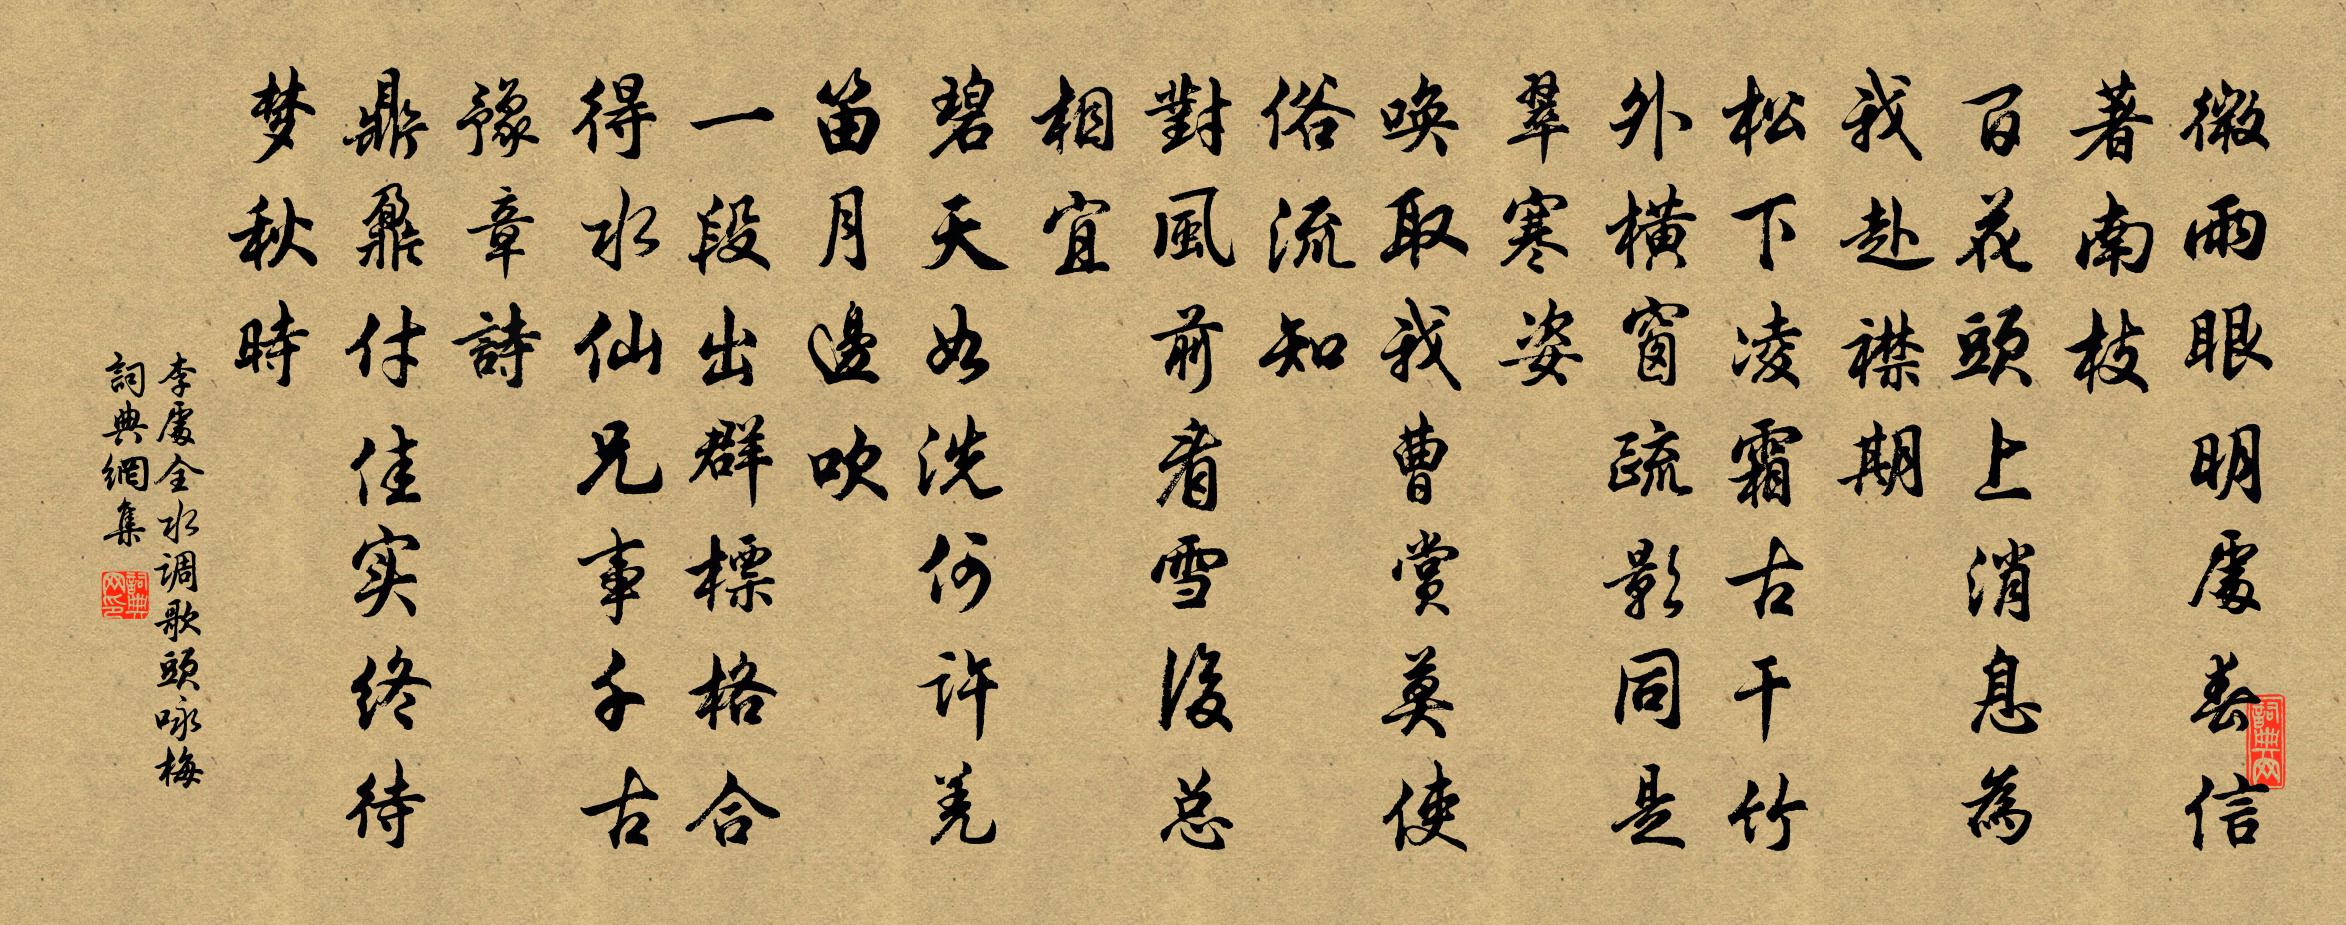 微雨眼明處春信
著南枝
百花頭上消息為
我赴襟期
松下凌霜古干竹
外橫窗疏影同是
翠寒姿
喚取我曹賞莫使
俗流知
對風前看雪後总
相宜
碧天如洗何许羌
笛月邊吹
一段出群標格合
得水仙兄事千古
豫章詩
鼎鼐付佳实终待
梦秋時
李處全水调歌頭咏梅
詞典網集
詞典网印
詞典网